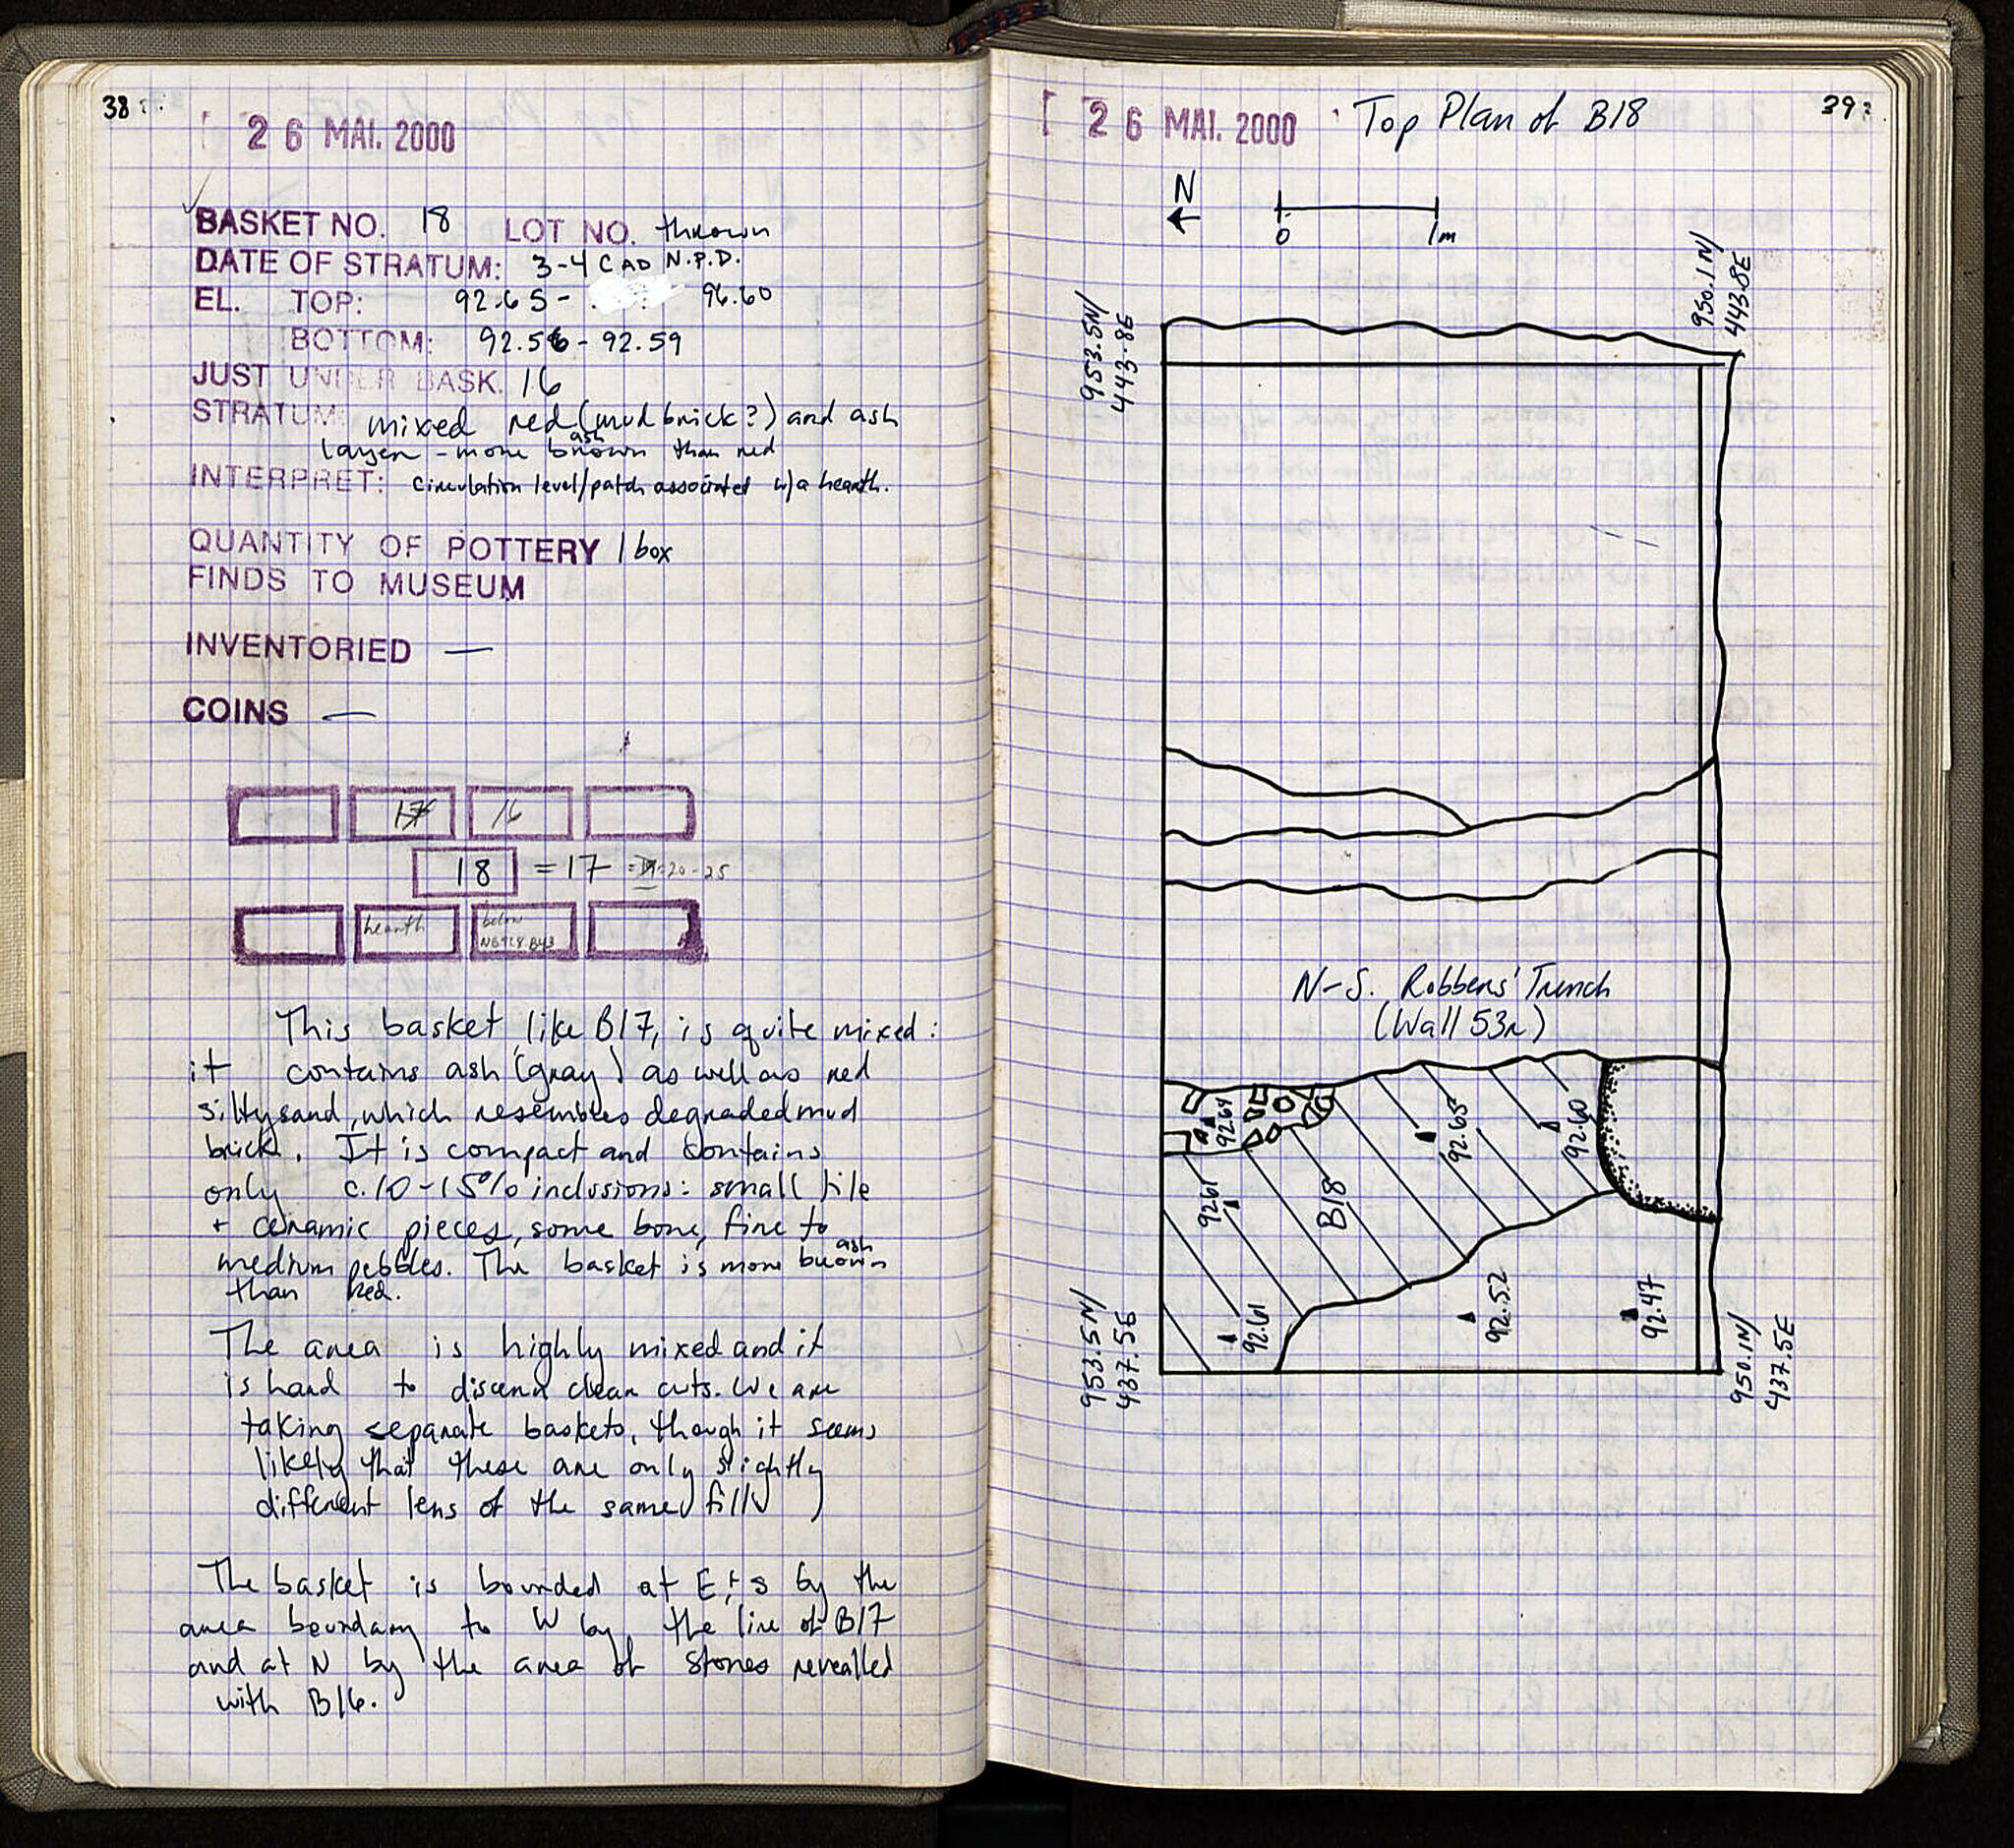 38
26 MAI. 2000
BASKET NO. 18 LOT NO. thrown
DATE OF STRATUM: 3-4 C AD N.P.D.
EL. TOP: 92.65 - 96.60
BOTTOM: 92.56 - 92.59
JUST UNDER BASK. 16
STRATUM: mixed red (mud brick?) and ash
ash
layer - more brown than red
INTERPRET: circulation level/patch associated w/a hearth.
QUANTITY OF POTTERY 1 box
FINDS TO MUSEUM
INVENTORIED —
COINS —
17 16
18 = 17 = 20-25
hearth below
NB928 B43
This basket, like B17, is quite mixed:
it contains ash (gray) as well as red
silty sand, which resembles degraded mud
brick. It is compact and contains
only c. 10-15% inclusions: small tile
+ ceramic pieces, some bone, fine to
ash
medium pebbles. The basket is more brown
than red.
The area is highly mixed and it
is hard to discern clear cuts. We are
taking separate baskets, though it seems
likely that these are only slightly
different lens of the same fill
The basket is bounded at E + S by the
area boundary to W by the line of B17
and at N by the area of stones revealled
with B16.
39
26 MAI. 2000 Top Plan of B18
N
0 1m
950.1N/
443.8E
953.5N/
443.8E
N-S. Robbers' Trench
(Wall 53r)
92.64
92.65
92.60
92.61
B18
92.61
92.52
92.47
953.5N/
437.5E
950.1N/
437.5E